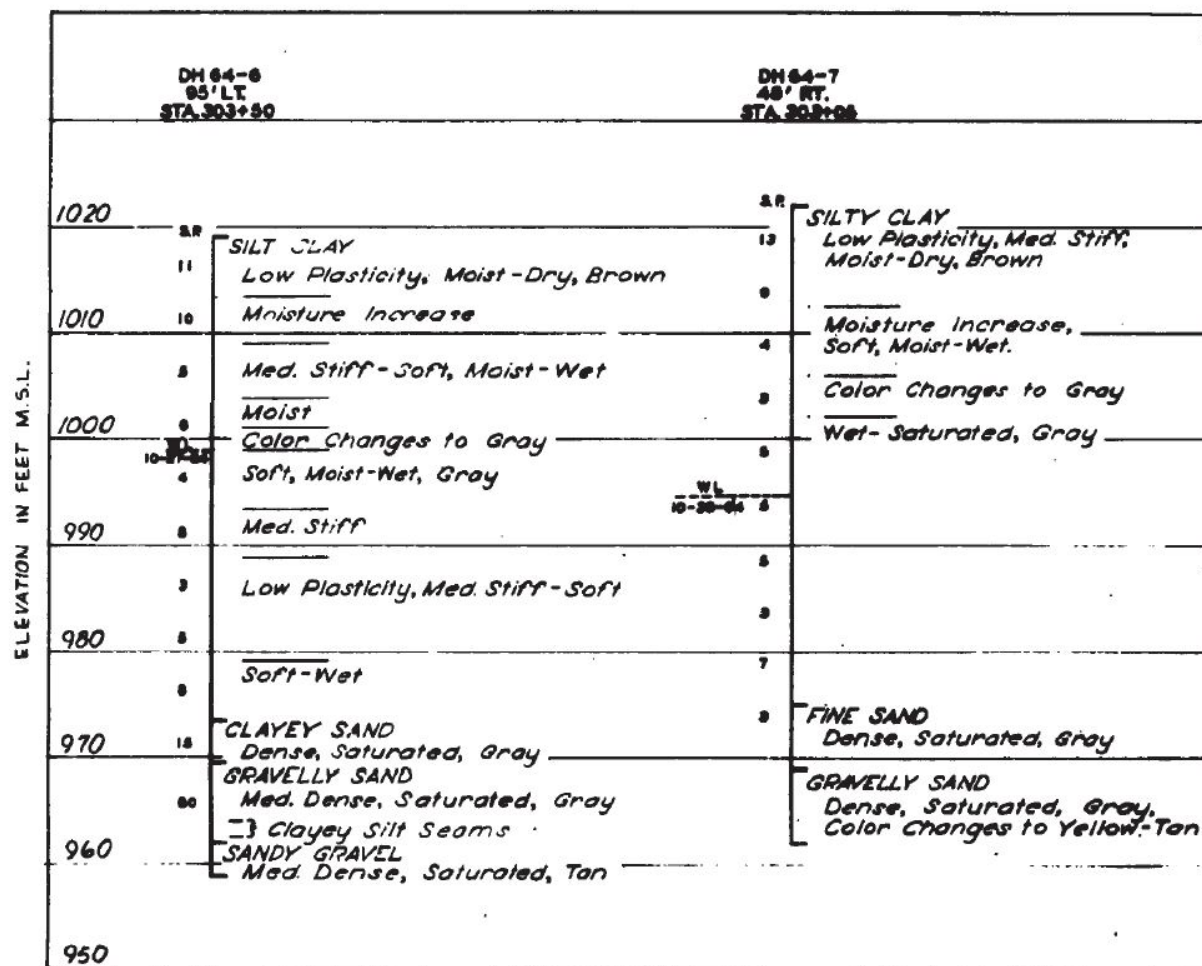 DH 64-6
95' LT.
STA. 303+50
DH 64-7
48' RT.
ELEVATION IN FEET M.S.L.
1020
1010
1000
990
980
970
960
950
S.P.
11
10
5
6
4
8
3
5
5
15
SILT CLAY
Low Plasticity, Moist-Dry, Brown
Moisture Increase
Med. Stiff-Soft, Moist-Wet
Moist
Color Changes to Gray
Soft, Moist-Wet, Gray
Med. Stiff
Low Plasticity, Med. Stiff-Soft
Soft-Wet
CLAYEY SAND
Dense, Saturated, Gray
GRAVELLY SAND
Med. Dense, Saturated, Gray
Clayey Silt Seams
SANDY GRAVEL
Med. Dense, Saturated, Tan
S.P.
13
9
4
3
5
W.L.
10-30-64
5
3
7
SILTY CLAY
Low Plasticity, Med. Stiff,
Moist-Dry, Brown
Moisture Increase,
Soft, Moist-Wet.
Color Changes to Gray
Wet-Saturated, Gray
FINE SAND
Dense, Saturated, Gray
GRAVELLY SAND
Dense, Saturated, Gray,
Color Changes to Yellow-Tan